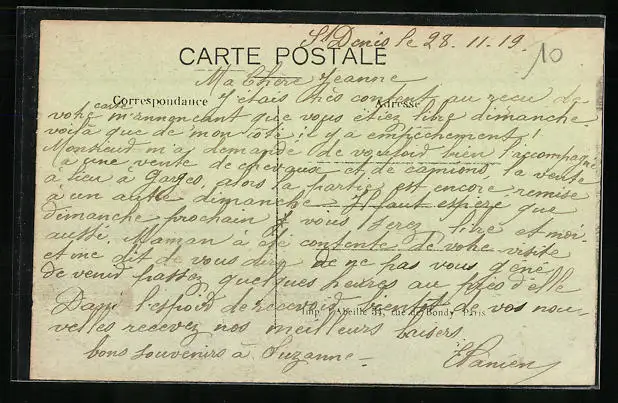 St Denis le 28.11.19.
10
CARTE POSTALE
Ma Chère Jeanne
Correspondance
Adresse
J'étais très content au reçu de
votre carte m'annonçant que vous étiez libre dimanche
voilà que de mon côté il y a empêchement!
Monsieur m'a demandé de vouloir bien l'accompagné
à une vente de chevaux et de camions la vente
à lieu à Garges, alors la partie est encore remise
à un autre dimanche Il faut espéré que
dimanche prochain vous serez libre et moi
aussi. Maman à été contente de votre visite
et me dit de vous dire de ne pas vous gêné
de venir passer quelques heures au près d'elle
Dans l'espoir de recevoir bientôt de vos nou-
Imp. Abeille 31, rue de Bondy Paris
velles recevez nos meilleurs baisers.
bons souvenirs à Suzanne -